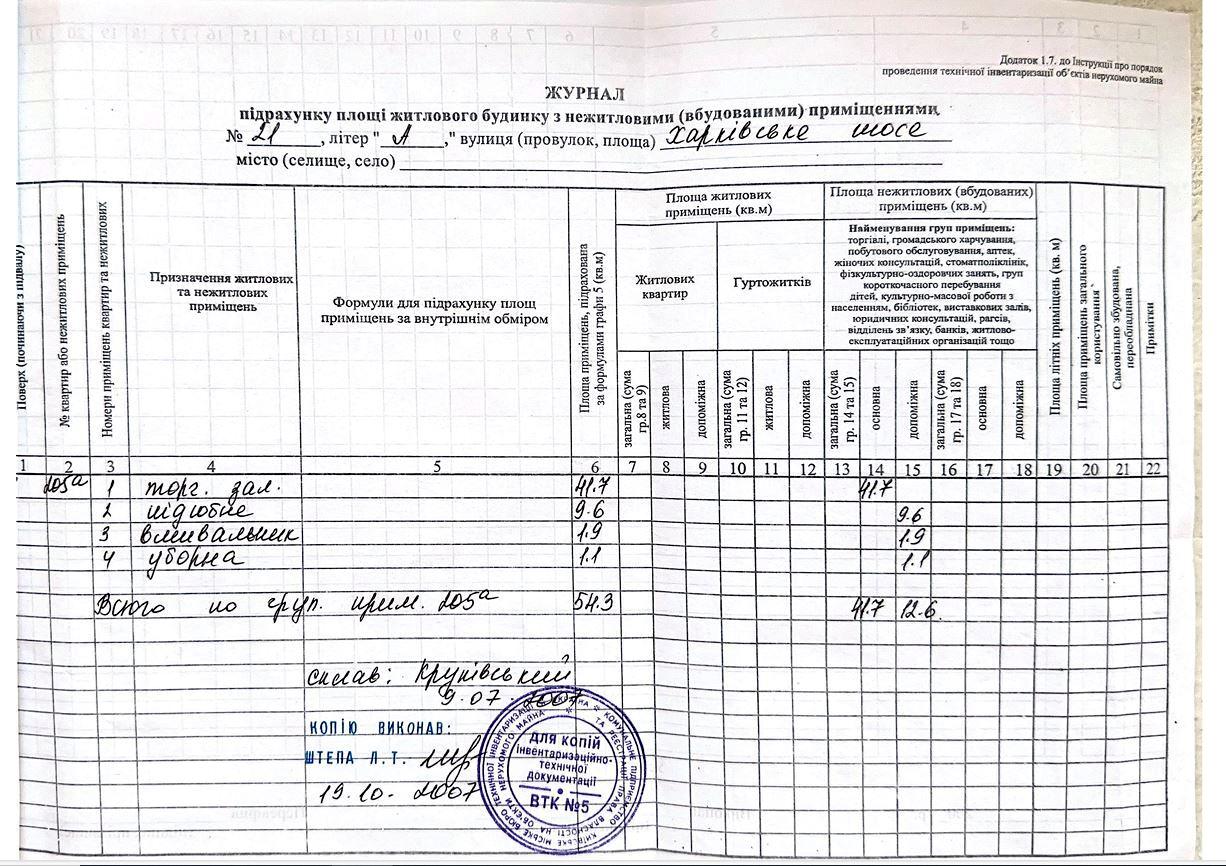 Додаток 1.7. до Інструкції про порядок
проведення технічної інвентаризації об'єктів нерухомого майна
ЖУРНАЛ
підрахунку площі житлового будинку з нежитловими (вбудованими) приміщеннями
№ 21, літер "А," вулиця (провулок, площа) Харківське шосе
місто (селище, село)
Поверх (починаючи з підвалу)
№ квартир або нежитлових приміщень
Номери приміщень квартир та нежитлових
Призначення житлових
та нежитлових
приміщень
Формули для підрахунку площ
приміщень за внутрішнім обміром
Площа приміщень, підрахована
за формулами графи 5 (кв.м)
Площа житлових
приміщень (кв.м)
Житлових
квартир
Гуртожитків
загальна (сума
гр.8 та 9)
житлова
допоміжна
загальна (сума
гр. 11 та 12)
житлова
допоміжна
Площа нежитлових (вбудованих)
приміщень (кв.м)
Найменування груп приміщень:
торгівлі, громадського харчування,
побутового обслуговування, аптек,
жіночих консультацій, стоматполіклінік,
фізкультурно-оздоровчих занять, груп
короткочасного перебування
дітей, культурно-масової роботи з
населенням, бібліотек, виставкових залів,
юридичних консультацій, рагсів,
відділень зв'язку, банків, житлово-
експлуатаційних організацій тощо
загальна (сума
гр. 14 та 15)
основна
допоміжна
загальна (сума
гр. 17 та 18)
основна
допоміжна
Площа літніх приміщень (кв. м)
Площа приміщень загального
користування
Самовільно збудована,
переобладнана
Примітки
1 2 3 4 5 6 7 8 9 10 11 12 13 14 15 16 17 18 19 20 21 22
205а 1 торг. зал. 41.7 41.7
2 підсобне 9.6 9.6
3 вмивальник 1.9 1.9
4 уборна 1.1 1.1
Всього по груп. прим. 205а 54.3 41.7 12.6
склав: Крупівський
9.07.2007
КОПІЮ ВИКОНАВ:
ШТЕПА Л.Т.
19.10-2007
ДЛЯ КОПІЙ
інвентаризаційно-
технічної
документації
ВТК №5
КИЇВСЬКЕ МІСЬКЕ БЮРО ТЕХНІЧНОЇ ІНВЕНТАРИЗАЦІЇ
КОМУНАЛЬНЕ ПІДПРИЄМСТВО
ТА РЕЄСТРАЦІЇ ПРАВА ВЛАСНОСТІ НА ОБ'ЄКТИ НЕРУХОМОГО МАЙНА